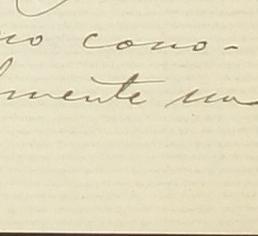 no cono-
lmente una